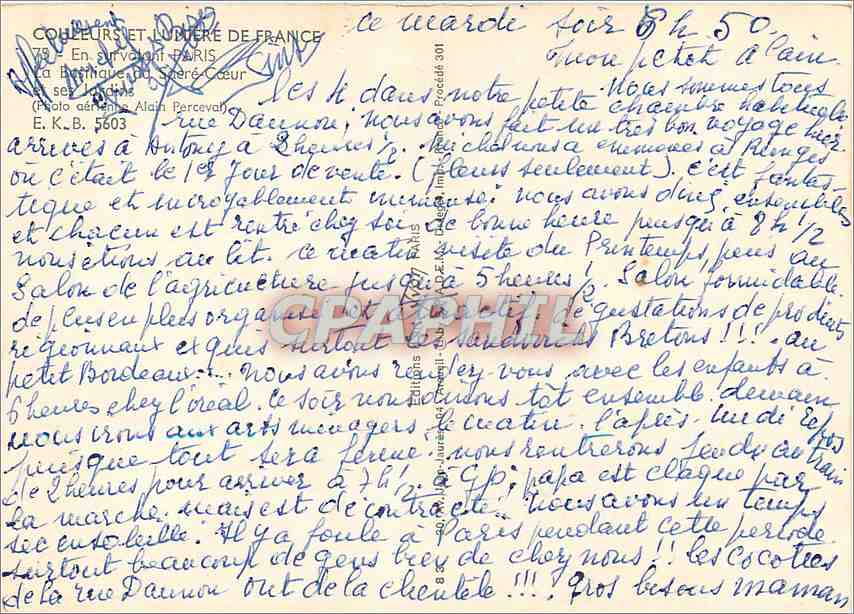 COULEURS ET LUMIÈRE DE FRANCE
75 - En survolant PARIS
La Basilique du Sacré-Cœur
et ses Jardins
(Photo aérienne Alain Perceval)
E. K. B. 5603
ce mardi soir 6h 50.
mon petit Alain
Nous sommes tous
les 4 dans notre petite chambre habituelle
rue Daunou; nous avons fait un très bon voyage hier
arrivés à Antony à 2 heures 1/2. Michel nous a emmenés à Rungis
où c'était le 1er jour de vente. (fleurs seulement). c'est fantas-
tique et incroyablement immense! nous avons dîné ensembles
et chacun est rentré chez soi de bonne heure puisqu'à 8h 1/2
nous étions au lit. ce matin visite du Printemps, puis au
Salon de l'agriculture jusqu'à 5 heures! Salon formidable
de plus en plus organisé et attractif. dégustations de produits
régionnaux exquis surtout les sandwichs Bretons!!! au
petit Bordeaux... nous avons rendez-vous avec les enfants à
6 heures chez l'oréal. ce soir nous dînons tôt ensemble. demain
nous irons aux arts ménagers le matin. l'après-midi repos
puisque tout sera fermé. nous rentrerons jeudi au train
de 2 heures pour arriver à 7h 1/2 à GP; papa est claqué par
la marche. mais est décontracté. Nous avons un temps
sec ensoleillé. Il y a foule à Paris pendant cette période
surtout beaucoup de gens bien de chez nous!! les cocottes
de la rue Daunou ont de la clientèle!!! gros bisous maman
Editions LYON PARIS
Imp. France Procédé 301
CPAPHIL